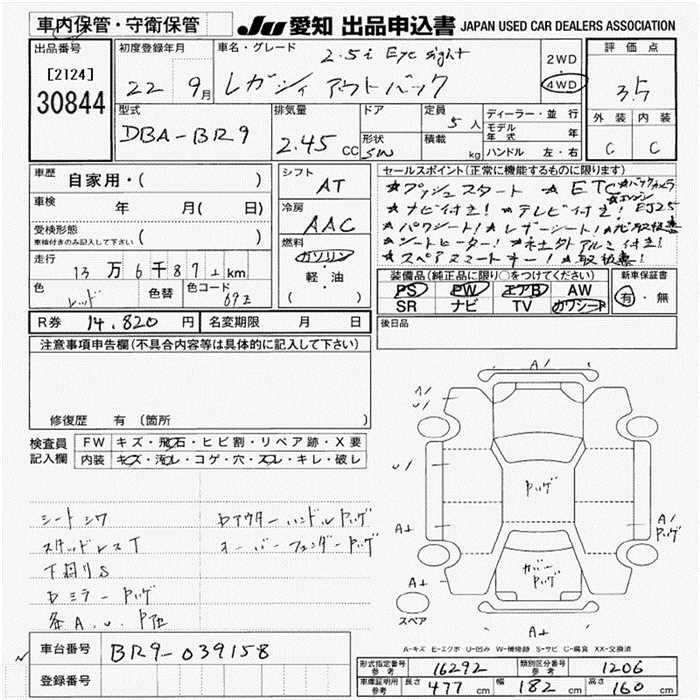 車内保管・守衛保管
JU 愛知 出品申込書 JAPAN USED CAR DEALERS ASSOCIATION
出品番号
[2124]
30844
初度登録年月
22 9月
車名・グレード
2.5i Eye sight
レガシィ アウトバック
2WD
・
4WD
評価点
3.5
外装 内装
C C
型式
DBA-BR9
排気量
2.45 cc
ドア
形状
SW
定員
5人
積載
kg
ディーラー・並行
モデル年式 年
ハンドル 左・右
車歴
自家用・( )
車検 年 月( 日)
受検形態
車検付きのみ記入して下さい ( )
走行
13万6千87 km
色
レッド
色替
色コード
69Z
シフト
AT
冷房
AAC
燃料
ガソリン
軽・油
( )
セールスポイント(正常に機能するものに限ります)
★プッシュスタート ★ETC ★バックカメラ
★ナビ付き! ★テレビ付き! ★エンジン EJ25
★パワシート! ★レザーシート! ★取扱書
★シートヒーター! ★社外アルミ付き!
★スペアスマートキー! ★取扱書!
装備品(純正品に限り○をつけてください)
PS PW エアB AW
SR ナビ TV カワシート
新車保証書
有・無
後日品
R券 14,820円
名変期限 月 日
注意事項申告欄(不具合内容等は具体的に記入して下さい)
修復歴 有(箇所 )
検査員
記入欄
FW キズ・飛石・ヒビ割・リペア跡・X要
内装 キズ・汚レ・コゲ・穴・スレ・キレ・破レ
シートシワ
スタッドレスT
下廻りS
Dミラー Pハゲ
各A.U.P跡
DアウターハンドルPハゲ
オーバーフェンダーPハゲ
A/
A/
U/
U/
Pハゲ
A+
A/
Pハゲ
A+
カバー
Pハゲ
A+
スペア
A-キズ E-エクボ U-凹み W-補修跡 S-サビ C-腐食 XX-交換済
車台番号
BR9-039158
登録番号
形式指定番号
参考
16292
類別区分番号
参考
1206
車庫証明用
参考
長さ 477cm 幅 182cm 高さ 160cm